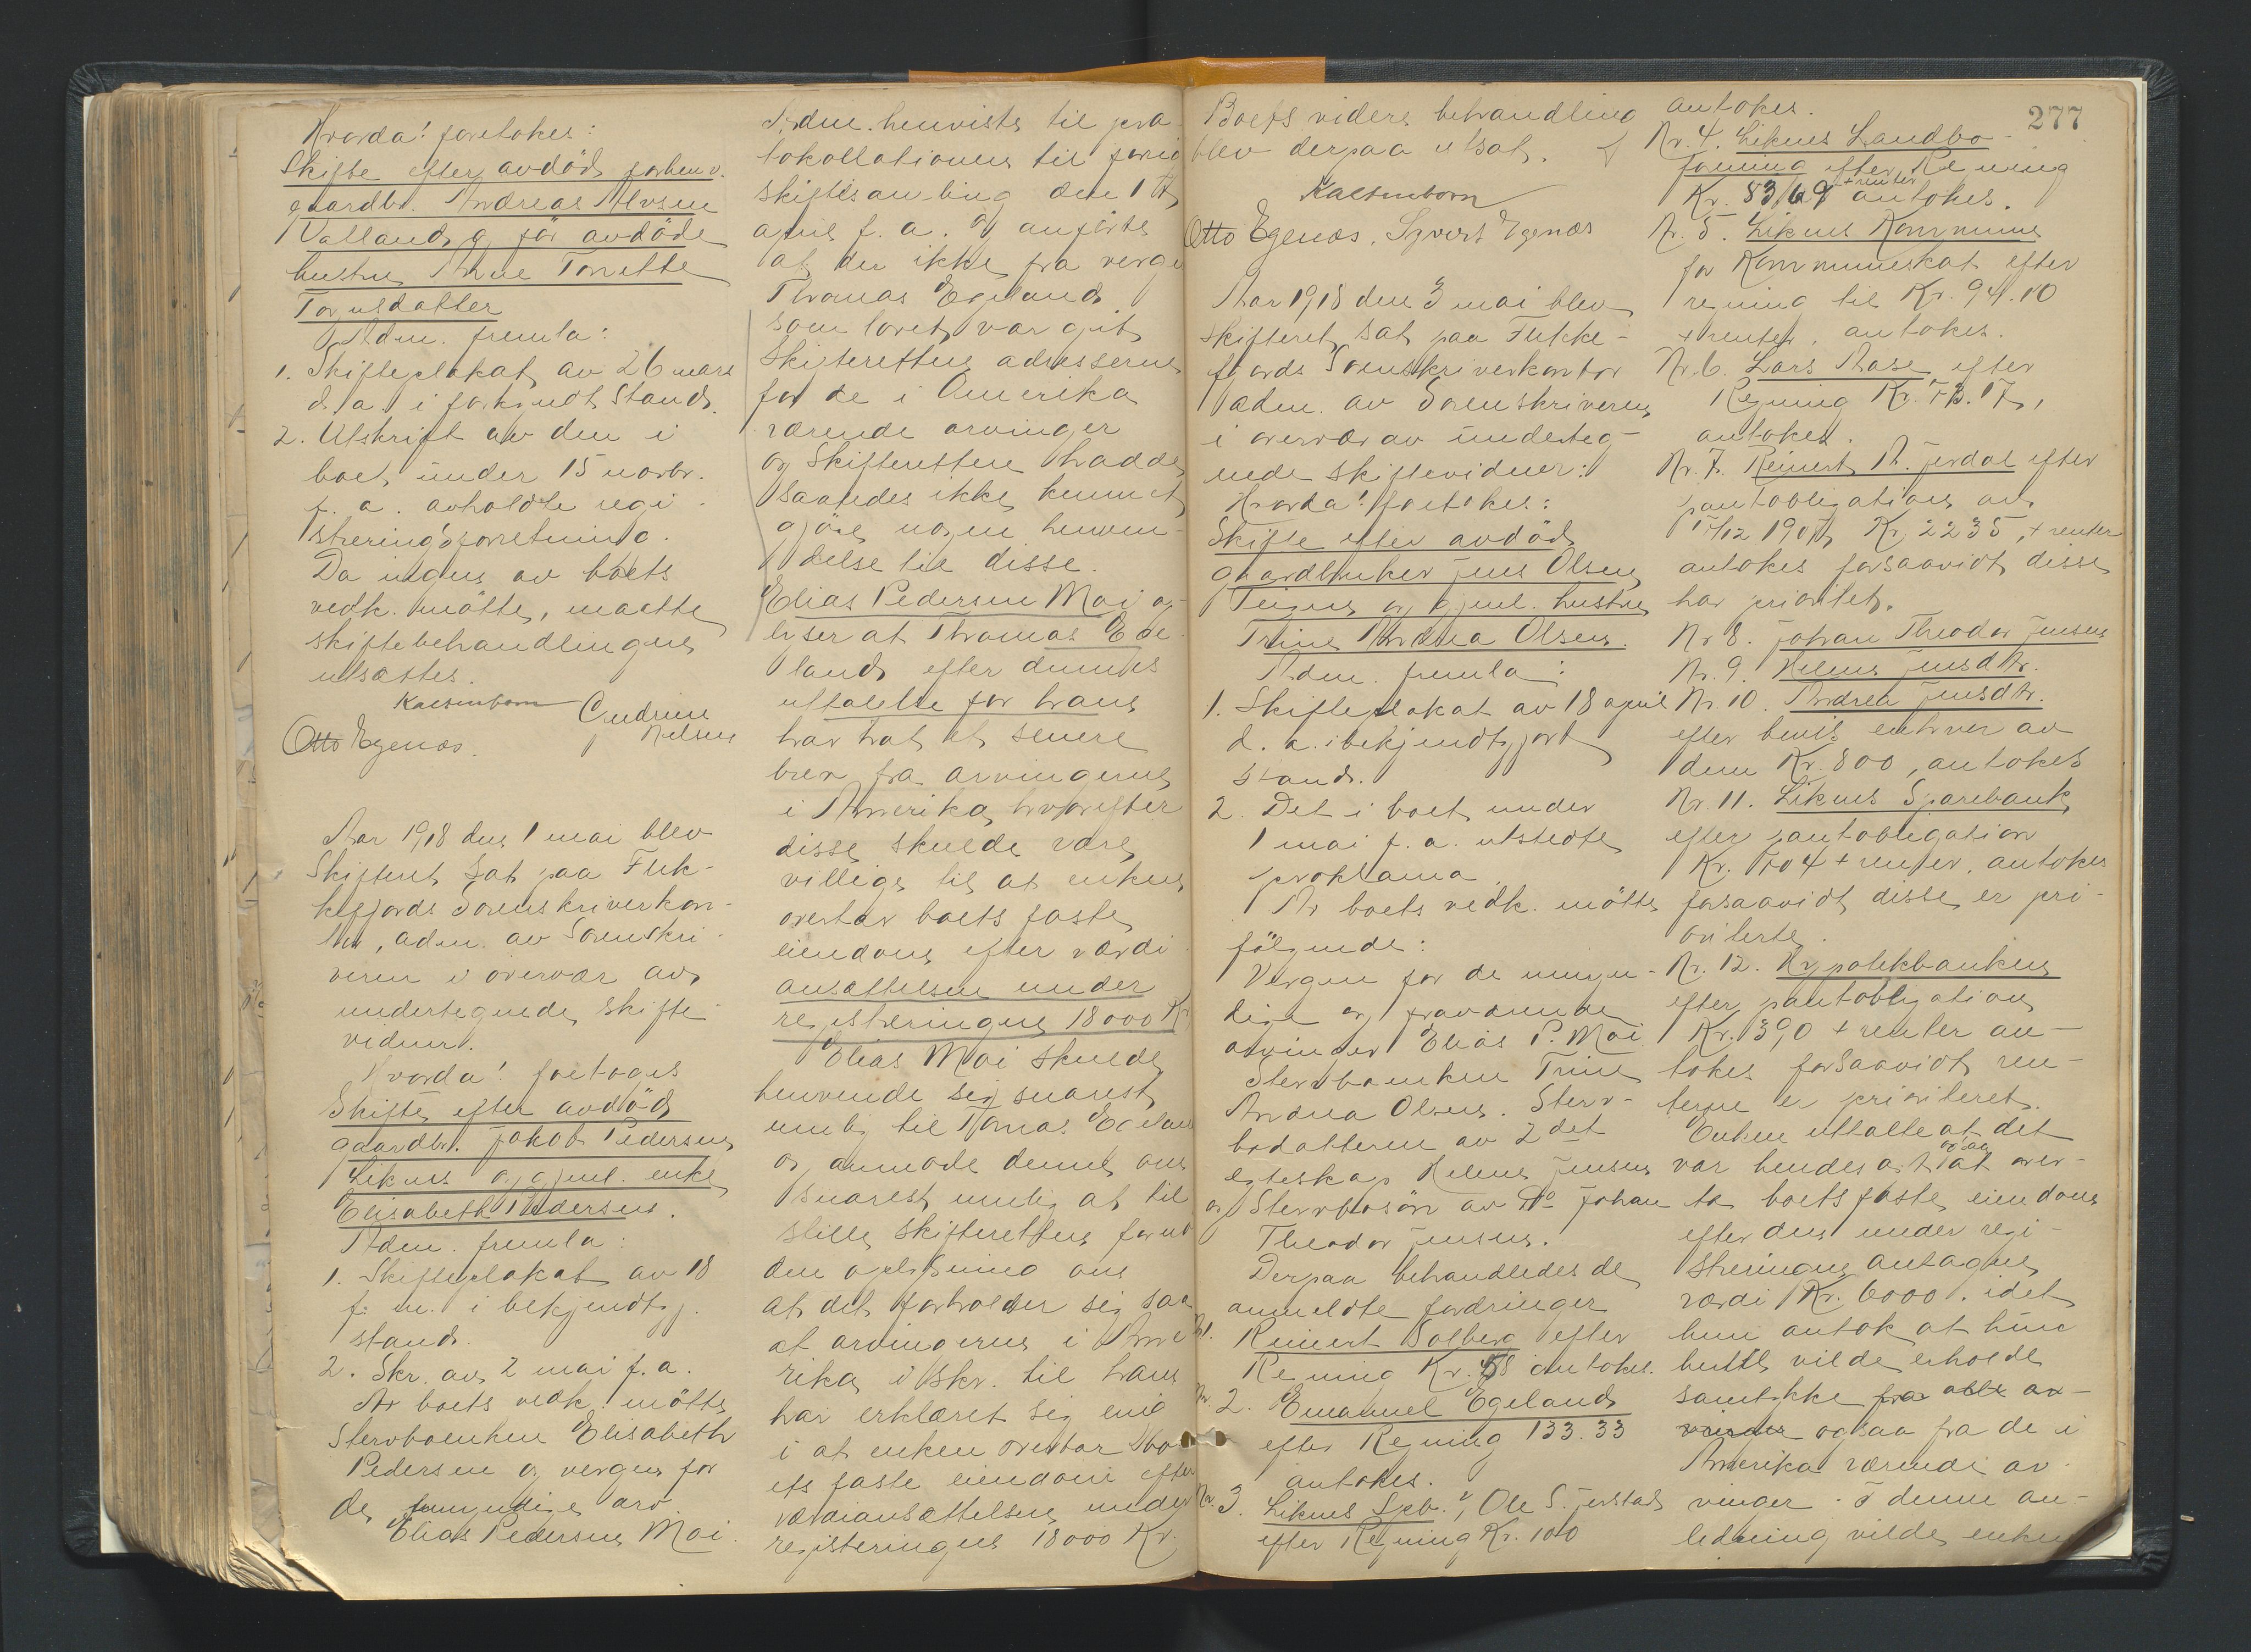 Hvorda! foretokes:
Skifte efter avdöd forhenv.
gaardbr. Andreas Alvsen
Valland og før avdöde
hustru Anne Tonette
Tomsdatter
Adm. fremla:
1. Skifteplakat av 26 mars
d. a. i forkyndt Stand.
2. Utskrift av den i
boet under 15 novbr.
f. a. avholdte regi-
streringsforretning.
Da ingen av boets
vedk. mötte, maatte
skiftebehandlingen
utsættes.
Kaltenborn
Gudrun
Nelsen
Otto Egenæs.
Aar 1918 den 1 mai blev
Skifteret sat paa Flek-
kefjords Sorenskriverkon-
tor, adm. av Sorenskri-
veren i overvær av
undertegnede skifte-
vidner.
Hvorda! foretoges
Skifte efter avdöd
gaardbr. Jakob Pedersen
Liknes og gjenl. enke
Elisabeth Pedersen.
Adm. fremla:
1. Skifteplakat av 18
f. m. i bekjendtgj.
stand.
2. Skr. av 2 mai f. a.
Av boets vedk. mötte
Stervboenken Elisabeth
Pedersen og vergen for
de umyndige arv.
Elias Pedersen Moi.
Adm. henviste til pro-
tokollationen til forrige
skiftesamling den 17
april f. a. og anförte
at der ikke fra verge
Thomas Egeland
som lovet var git
Skifteretten adresserne
for de i Amerika
værende arvinger
og Skifteretten hadde
saaledes ikke kunnet
gjöre nogen henven-
delse til disse.
Elias Pedersen Moi op-
lyser at Thomas Ege-
land efter dennes
uttalelse for ham
har hat et senere
brev fra arvingerne
i Amerika hvorefter
disse skulde være
villige til at enken
overtar boets faste
eiendom efter værdi-
ansættelsen under
registreringen 18000 Kr.
Elias Moi skulde
henvende sig snarest
mulig til Tomas Egeland
og anmode denne om
snarest mulig at til-
stille skifteretten fornö-
den oplysning om
at det forholder sig saa
at arvingerne i Ame-
rika i skr. til ham
har erklæret sig enig
i at enken overtar bo-
ets faste eiendom efter
værdiansættelsen under
registeringen 18000 Kr.
Boets videre behandling
blev derpaa utsat.
Kaltenborn
Otto Egenæs. Syvert Egenæs
Aar 1918 den 3 mai blev
skifteret sat paa Flekke-
fjords Sorenskriverkontor
adm. av Sorenskriveren
i overvær av underteg-
nede skiftevidner:
Hvorda! foretokes:
Skifte efter avdöd
gaardbruker Jens Olsen
Teigen og gjenl. hustru
Trine Andrea Olsen.
Adm. fremla:
1. Skifteplakat av 18 april
d. a. i bekjendtgjort
stand.
2. Det i boet under
1 mai f. a. utstedte
proklama.
Av boets vedk. mötte
fölgende:
Vergen for de umyn-
dige og fraværende
arvinger Elias P. Moi
Stervboenken Trine
Andrea Olsen. Sterv-
bodatteren av 2det
egteskap Helene Jensen
og Stervbosön av do Johan
Theodor Jensen.
Derpaa behandledes de
anmeldte fordringer
Nr. 1. Reinert Solberg efter
Regning Kr. 58 antokes.
Nr. 2. Emanuel Egeland
efter Regning 133.33
antokes.
Nr. 3. Liknes Spb., Ole S. Jerstad
efter Regning Kr. 100
antokes.
277
Nr. 4. Liknes Landbo-
forening efter Regning
Kr. 83.69 + renter antokes.
Nr. 5. Liknes Kommune
for Kommuneskat efter
regning til Kr. 94.10
+ renter, antokes.
Nr. 6. Lars Aase efter
Regning Kr. 73.17,
antokes.
Nr. 7. Reinert A. Jerdal efter
pantobligation av
/12 190 Kr. 2235, + renter
antokes forsaavidt disse
har prioritet.
Nr 8. Johan Theodor Jensen
Nr. 9. Helene Jensdtr.
Nr. 10. Andrea Jensdtr.
efter bevis enhver av
dem Kr. 800, antokes
Nr. 11. Liknes Sparebank
efter pantobligation
Kr. 704 + renter. antokes
forsaavidt disse er pri-
oriterte.
Nr. 12. Hypotekbanken
efter pantobligation
Kr. 390 + renter an-
tokes forsaavidt ren-
terne er prioriteret.
Enken uttalte at det
var hendes agt ogsaa at over-
ta boets faste eiendom
efter den under regi-
streringen antagne
værdi Kr. 6000. idet
hun antok at hun
hertil vilde erholde
samtykke fra alle ar-
vinger ogsaa fra de i
Amerika værende ar-
vinger. I denne an-
ledning vilde enken